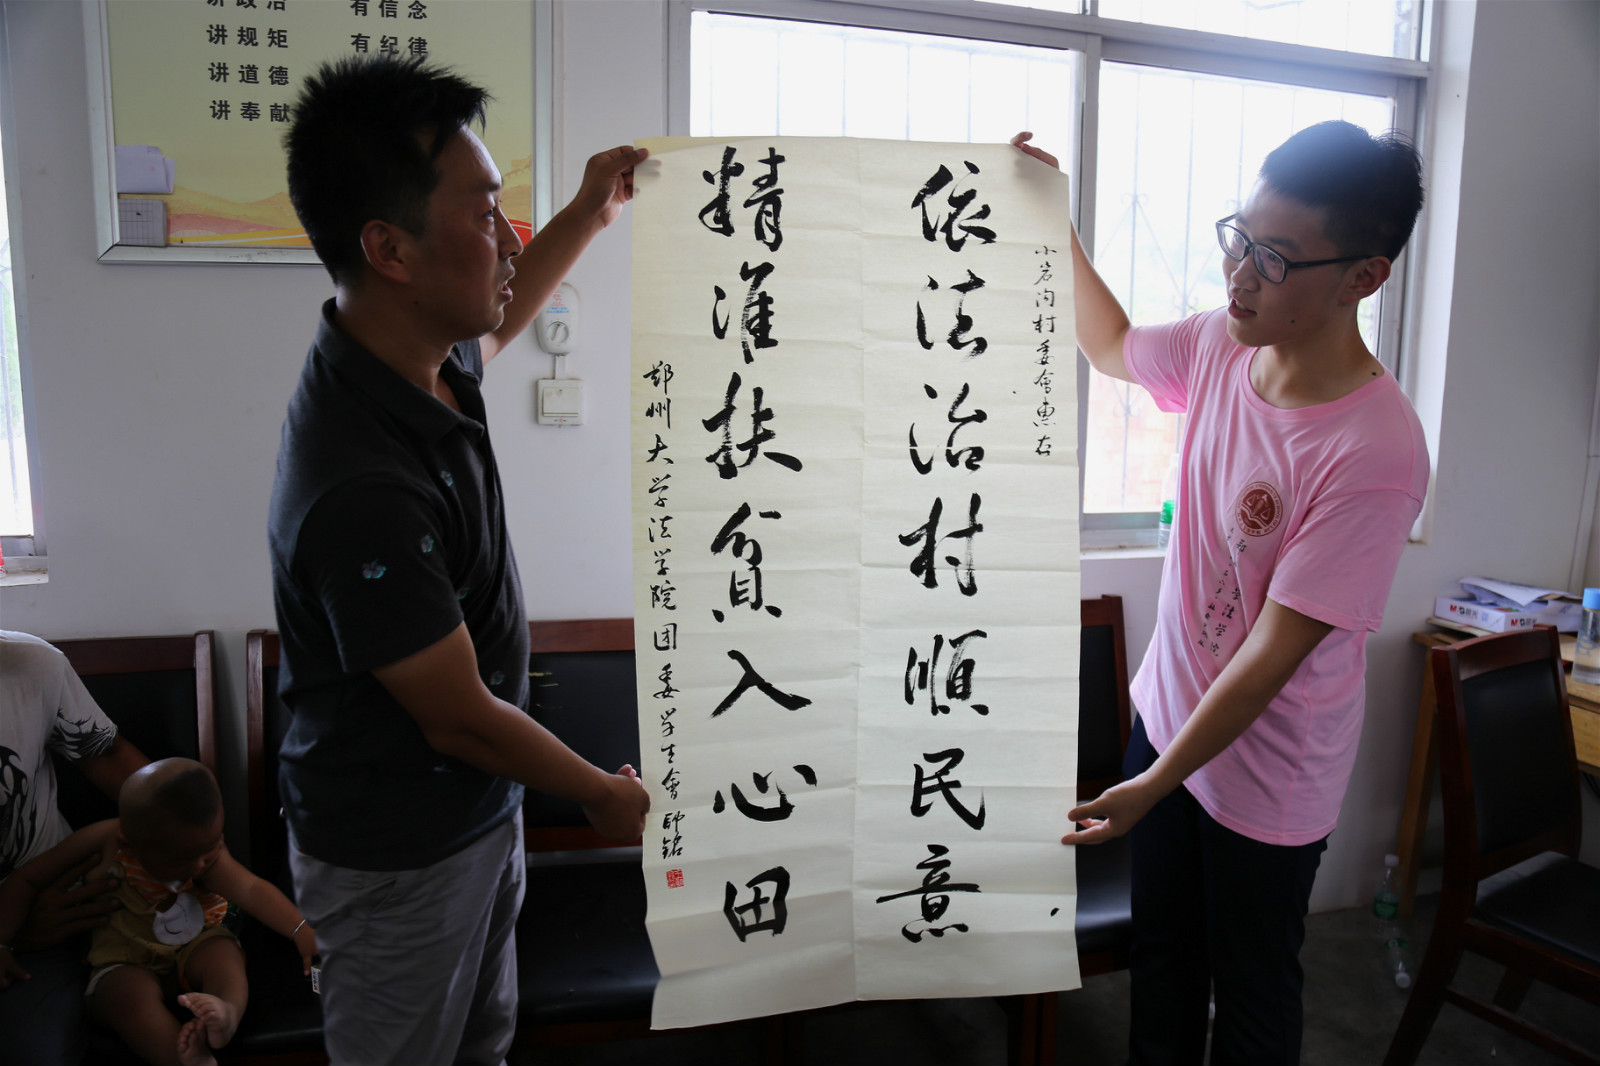 讲政治
有信念
讲规矩
有纪律
讲道德
讲奉献
小岩沟村委會惠存
依法治村順民意
精准扶贫入心田
郑州大学法学院团委学生會 師銘
M&G
学法学院